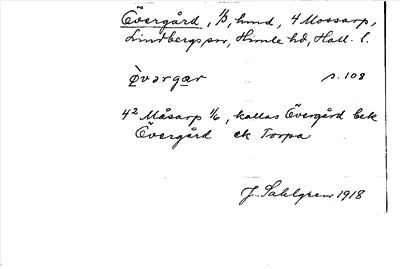 Övergård, 1/3, hmd, 4 Mossarp,
Lindbergs sn, Himle hd, Hall. l.
òvərgær s. 108
4² Måsarp 1/6, kallas Övergård bek
Övergård ek Torpa
J. Sahlgren 1918